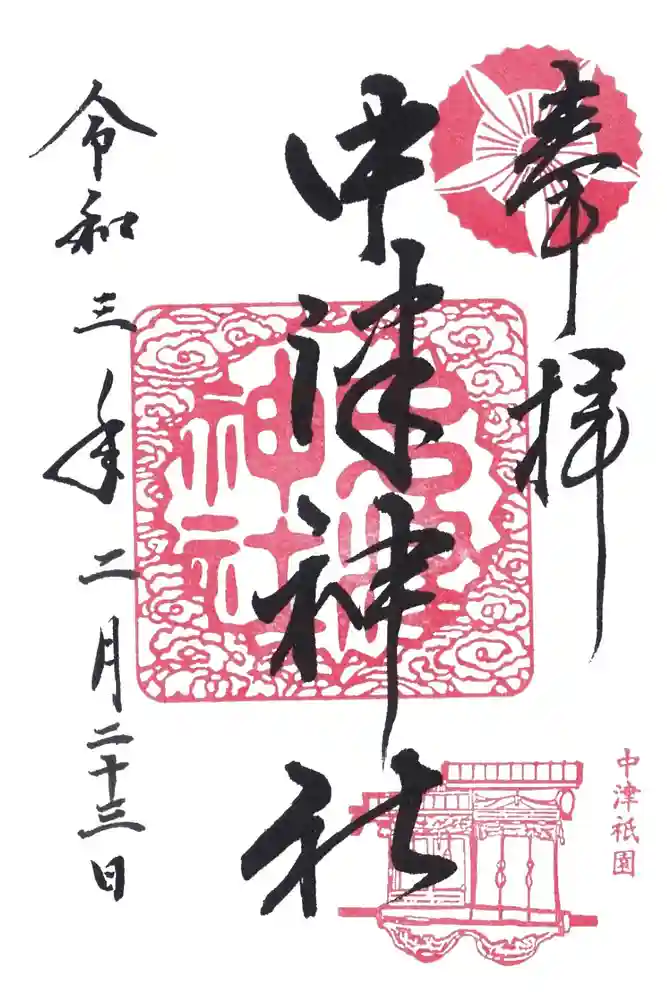 奉拝
中津祇園
中津神社
神社
令和三年二月二十三日